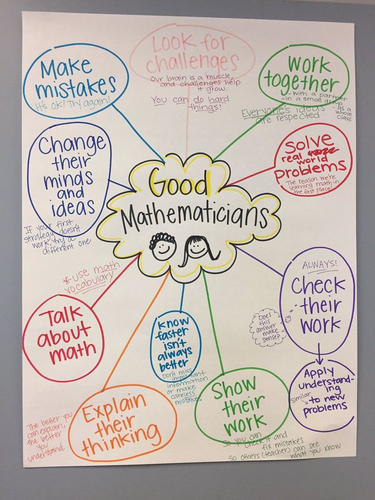 Look for
challenges
Our brain is a muscle,
and challenges help
it grow.
You can do hard
things!
Make
mistakes
It's ok! Try again!
work
together
with a partner
in a small group
As a
whole
class
Everyone's ideas
are respected
Change
their
minds
and
ideas
If your first
strategy doesn't
work, try a
different one
Solve
real world
problems
The reason we're
learning math in
the first place!
Good
Mathematicians
ALWAYS!
Check
their
work
Does
this
answer make
sense?
Apply
understand-
ing to
similar
new
problems
*use math
vocabulary
Talk
about
math
know
faster
isn't
always
better
don't miss important
information
or make
careless
mistakes
Explain
their
thinking
The better you
can explain,
the better
you
understand.
Show
their
work
So you can
check it and
fix mistakes
so others (teacher) can see
what you know